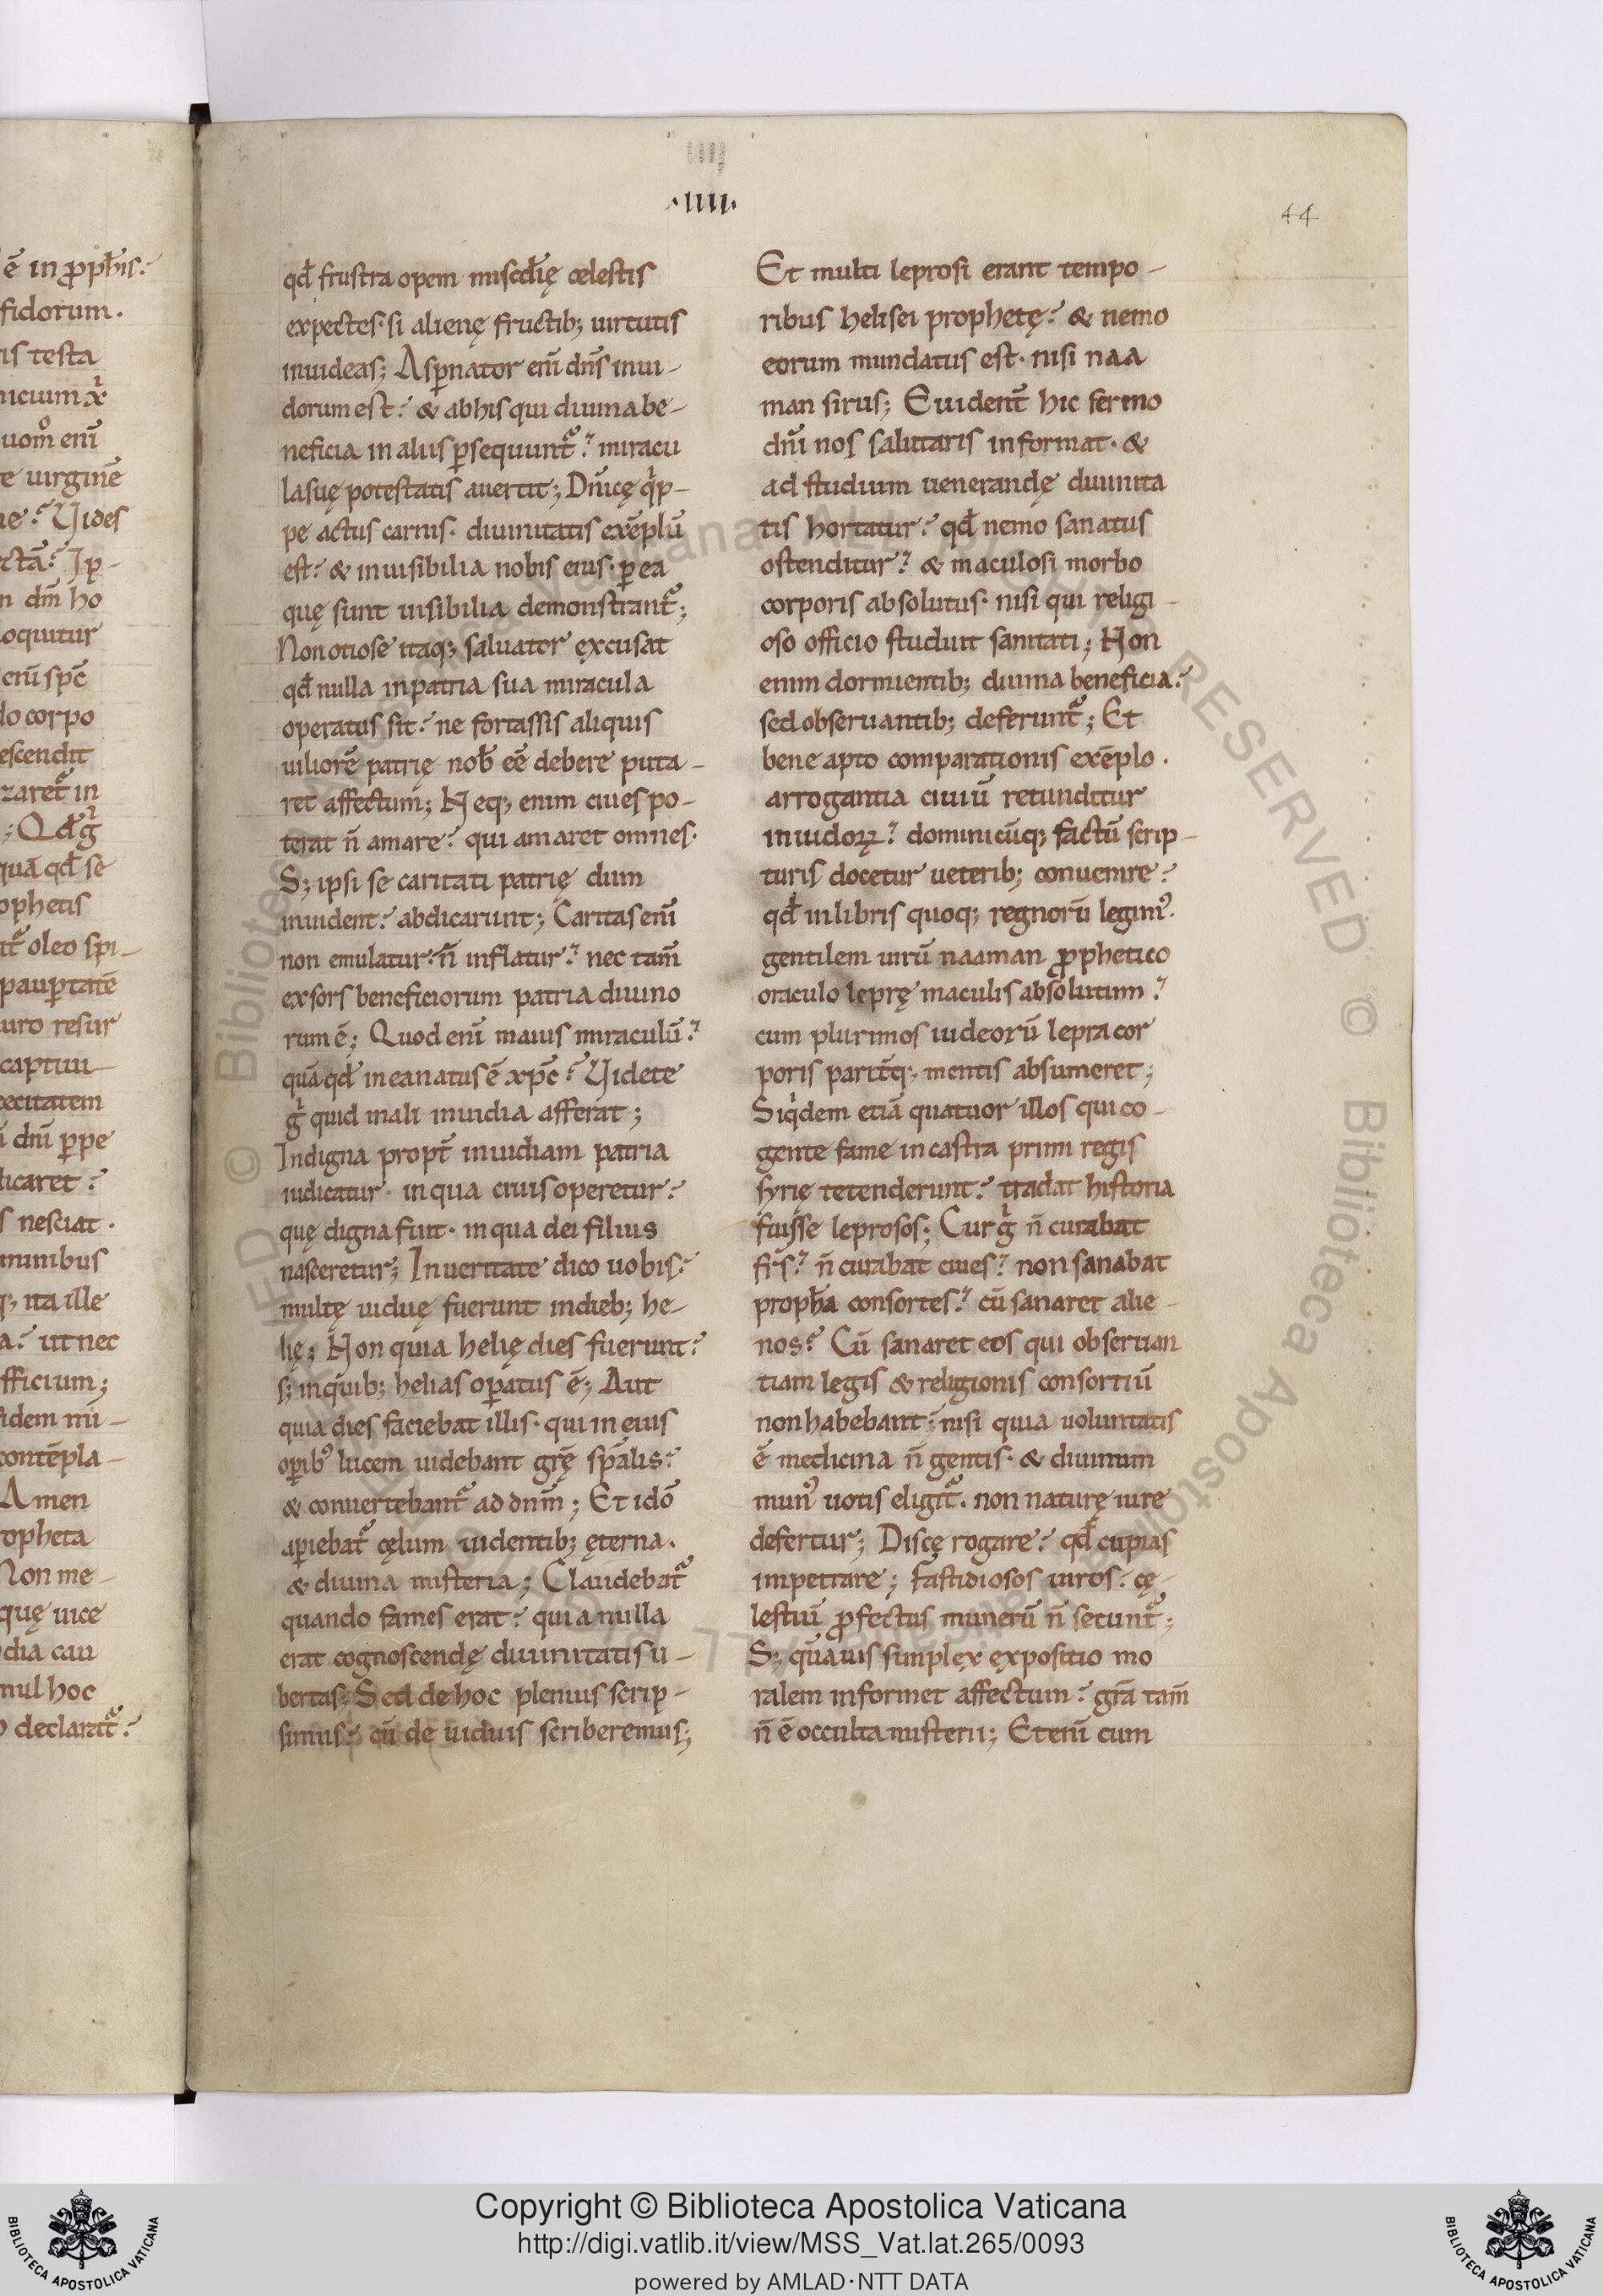 ē in ꝓph̄is.
fidorum.
is testa
uom̊ enī
e uirginē
ne? Vides
n dm̄ ho
loquitur
enī sp̄c
do corpo
escendit
zaret᷑ in
quā qd̄ se
ophetis
oleo spi-
paup̱tatē
uro resur
captiui-
cecitatem
dn̄i ꝑpe
dicaret?
s nesciat.
minibus
ita ille
a? ut nec
fficium;
idem nū-
contēpla-
Amen
opheta
Non me-
quę uice
dia cau
mul hoc
declarat᷑?
.IIII.
44
qd̄ frustra opem misc̄dię celestis
expectes· si alienę fructib; uirtutis
inuideas; Asꝑnator enī dn̄s inui-
dorum est? & ab his qui diuina be-
neficia in aliis ꝑsequunt᷑? miracu
la suę potestatis auertit; Dn̄icę qͥp-
pe actus carnis· diuinitatis exēplū
est? & inuisibilia nobis eius· ꝑ ea
quę sunt uisibilia demonstrant᷑;
Non otiose itaq; saluator excusat
qd̄ nulla in patria sua miracula
operatus sit? ne fortassis aliquis
uiliorē patrię nob̄ eē debere puta-
ret affectum; Neq; enim ciues po-
terat n̄ amare? qui amaret omnes·
S; ipsi se caritati patrię dum
inuident? abdicarunt; Caritas enī
non emulatur· n̄ inflatur? nec tam̄
exsors beneficiorum patria diuino
rum ē; Quod enī maius miraculū?
quā qd̄ in ea natus ē xp̄c? Videte
gͥ quid mali inuidia afferat;
Indigna propt̄ inuidiam patria
iudicatur· in qua ciuis operetur?
quę digna fuit· in qua dei filius
nasceretur; In ueritate dico uobis?
multę uiduę fuerunt in dieb; he-
lię; Non quia helię dies fuerunt?
s; in quib; helias oꝑatus ē; Aut
quia dies faciebat illis· qui in eius
oꝑibꝰ lucem uidebant grę̄ sp̄alis?
& conuertebant᷑ ad dnm̄; Et idō
aꝑiebat᷑ cęlum uidentib; ęterna.
& diuina misteria; Claudebat᷑
quando fames erat? quia nulla
erat cognoscendę diuinitatis u-
bertas· Sed de hoc plenius scrip-
simus? cū de uiduis scriberemus;
Et multi leprosi erant tempo-
ribus helisei prophetę? & nemo
eorum mundatus est· nisi naa
man sirus; Euident̄ hic sermo
dn̄i nos salutaris informat· &
ad studium uenerandę diuinita
tis hortatur? qd̄ nemo sanatus
ostenditur? & maculosi morbo
corporis absolutus· nisi qui religi-
oso officio studuit sanitati; Non
enim dormientib; diuina beneficia?
sed obseruantib; deferunt᷑; Et
bene apto comparationis exēplo.
arrogantia ciuiū retunditur
inuidoꝝ? dominicūq; factū scrip-
turis docetur ueterib; conuenire?
qd̄ in libris quoq; regnorū legimꝰ.
gentilem uirū naaman ꝓphetico
oraculo leprę maculis absolutum?
cum plurimos iudeorū lepra cor
poris parit̄q; mentis absumeret;
Siqͥdem etiā quatuor illos qui co-
gente fame in castra primi regis
syrię tetenderunt? tradat historia
fuisse leprosos; Cur gͥ n̄ curabat
fr̄s? n̄ curabat ciues? non sanabat
proph̄a consortes? cū sanaret alie-
nos? Cū sanaret eos qui obseruan
tiam legis & religionis consortiū
non habebant? nisi quia uoluntatis
ē medicina n̄ gentis· & diuinum
munꝰ uotis eligit᷑. non naturę iure
defertur; Discę rogare? qd̄ cupias
impetrare; fastidiosos uiros? cę-
lestiū ꝓfectus munerū n̄ secunt᷑;
S; quāuis simplex expositio mo
ralem informet affectum? grā tam̄
n̄ ē occulta misterii; Etenī cum
Copyright © Biblioteca Apostolica Vaticana
http://digi.vatlib.it/view/MSS_Vat.lat.265/0093
powered by AMLAD·NTT DATA
BIBLIOTECA APOSTOLICA VATICANA
BIBLIOTECA APOSTOLICA VATICANA